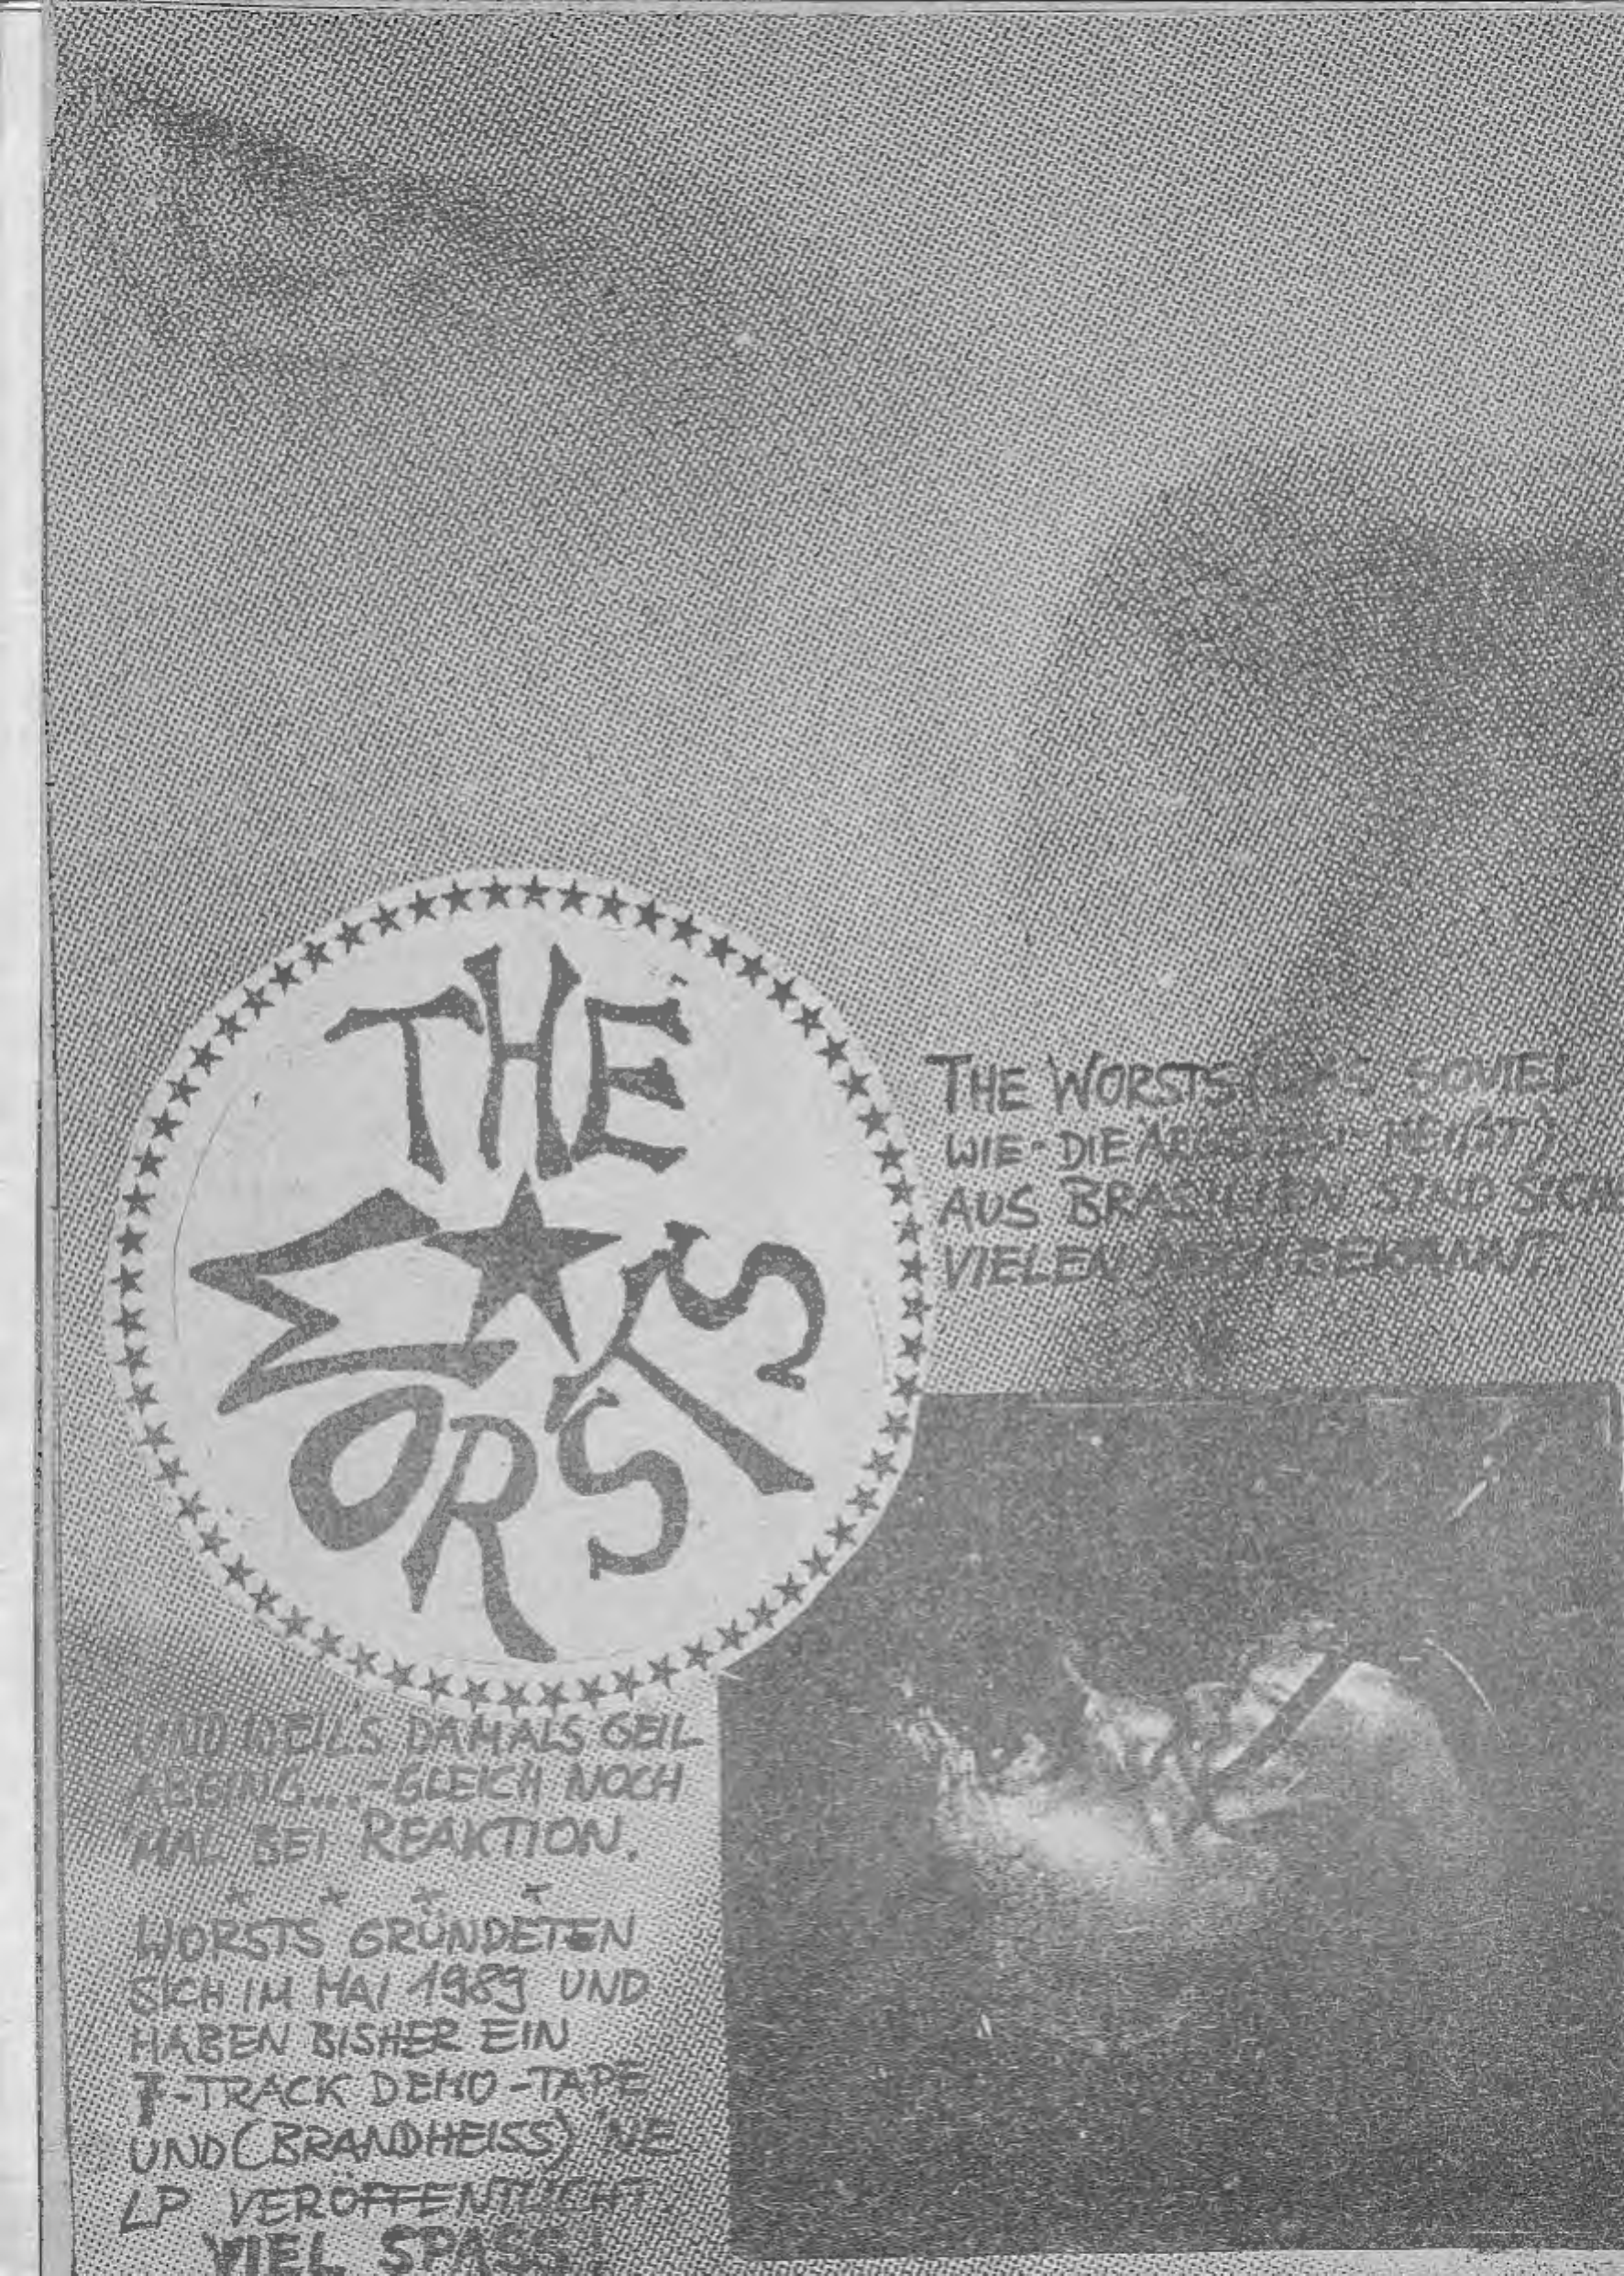 THE
WORSTS
THE WORSTS SOVIEL
WIE - DIE HEISST)
AUS BRASILIEN SIND SICH
VIELEN BEKANNT
UND WEIL'S DAMALS GEIL
ABGING... - GLEICH NOCH
MAL BEI REAKTION.
WORSTS GRÜNDETEN
SICH IM MAI 1989 UND
HABEN BISHER EIN
7-TRACK DEMO-TAPE
UND (BRANDHEISS) 'NE
LP VERÖFFENTLICHT.
VIEL SPASS!